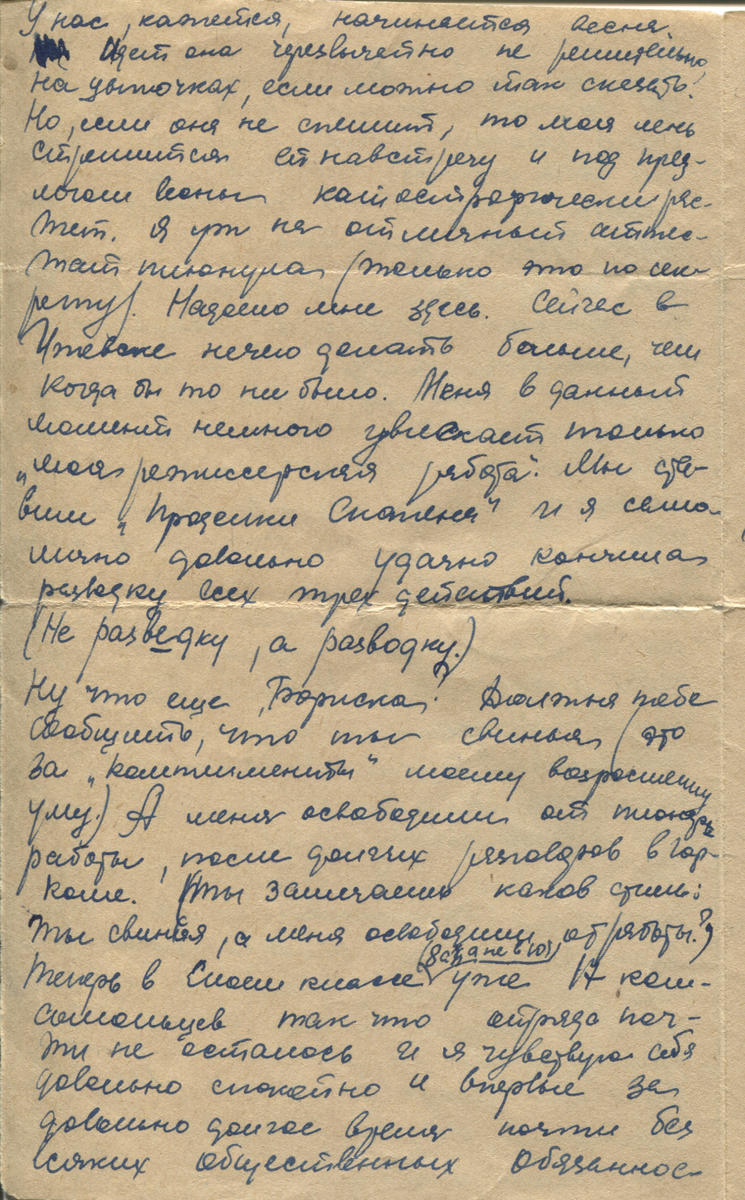 У нас, кажется, начинается весна.
Идет она чрезвычайно не решительно,
на цыпочках, если можно так сказать.
Но, если она не спешит, то моя лень
стремится ей навстречу и под пред-
логом весны катастрофически рас-
тет. Я уж на отличный аттес-
тат плюнула (только это по сек-
рету). Надоело мне здесь. Сейчас в
Ижевске нечего делать больше, чем
когда бы то ни было. Меня в данный
момент немного увлекает только
„моя режиссерская работа“. Мы ста-
вим „Проделки Скапена“ и я само-
лично довольно удачно кончила
разводку всех трех действий.
(Не разведку, а разводку.)
Ну что еще, Бориска? Должна тебе
сообщить, что ты свинья (это
за „комплименты“ моему возросшему
уму.) А меня освободили от пионер
работы, после долгих разговоров в гор-
коме. (Ты замечаешь каков стиль:
ты свинья, а меня освободили от работы?)
Теперь в моем классе (8а, а не в 10) уже 17 ком-
сомольцев так что отряда поч-
ти не осталось и я чувствую себя
довольно спокойно и впервые за
довольно долгое время почти без
всяких общественных обязаннос-